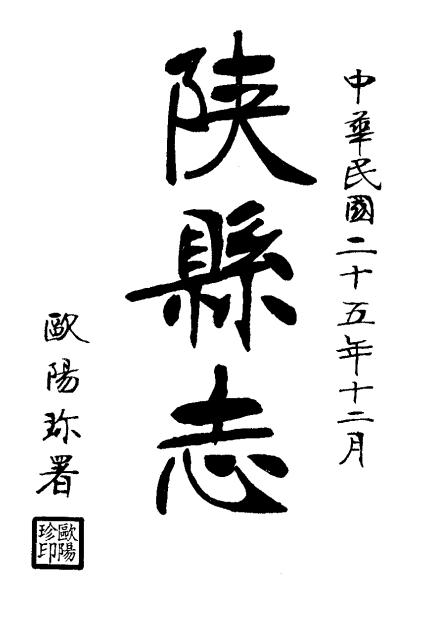 中華民國二十五年十二月
陕縣志
歐陽珎署
歐陽
珍印